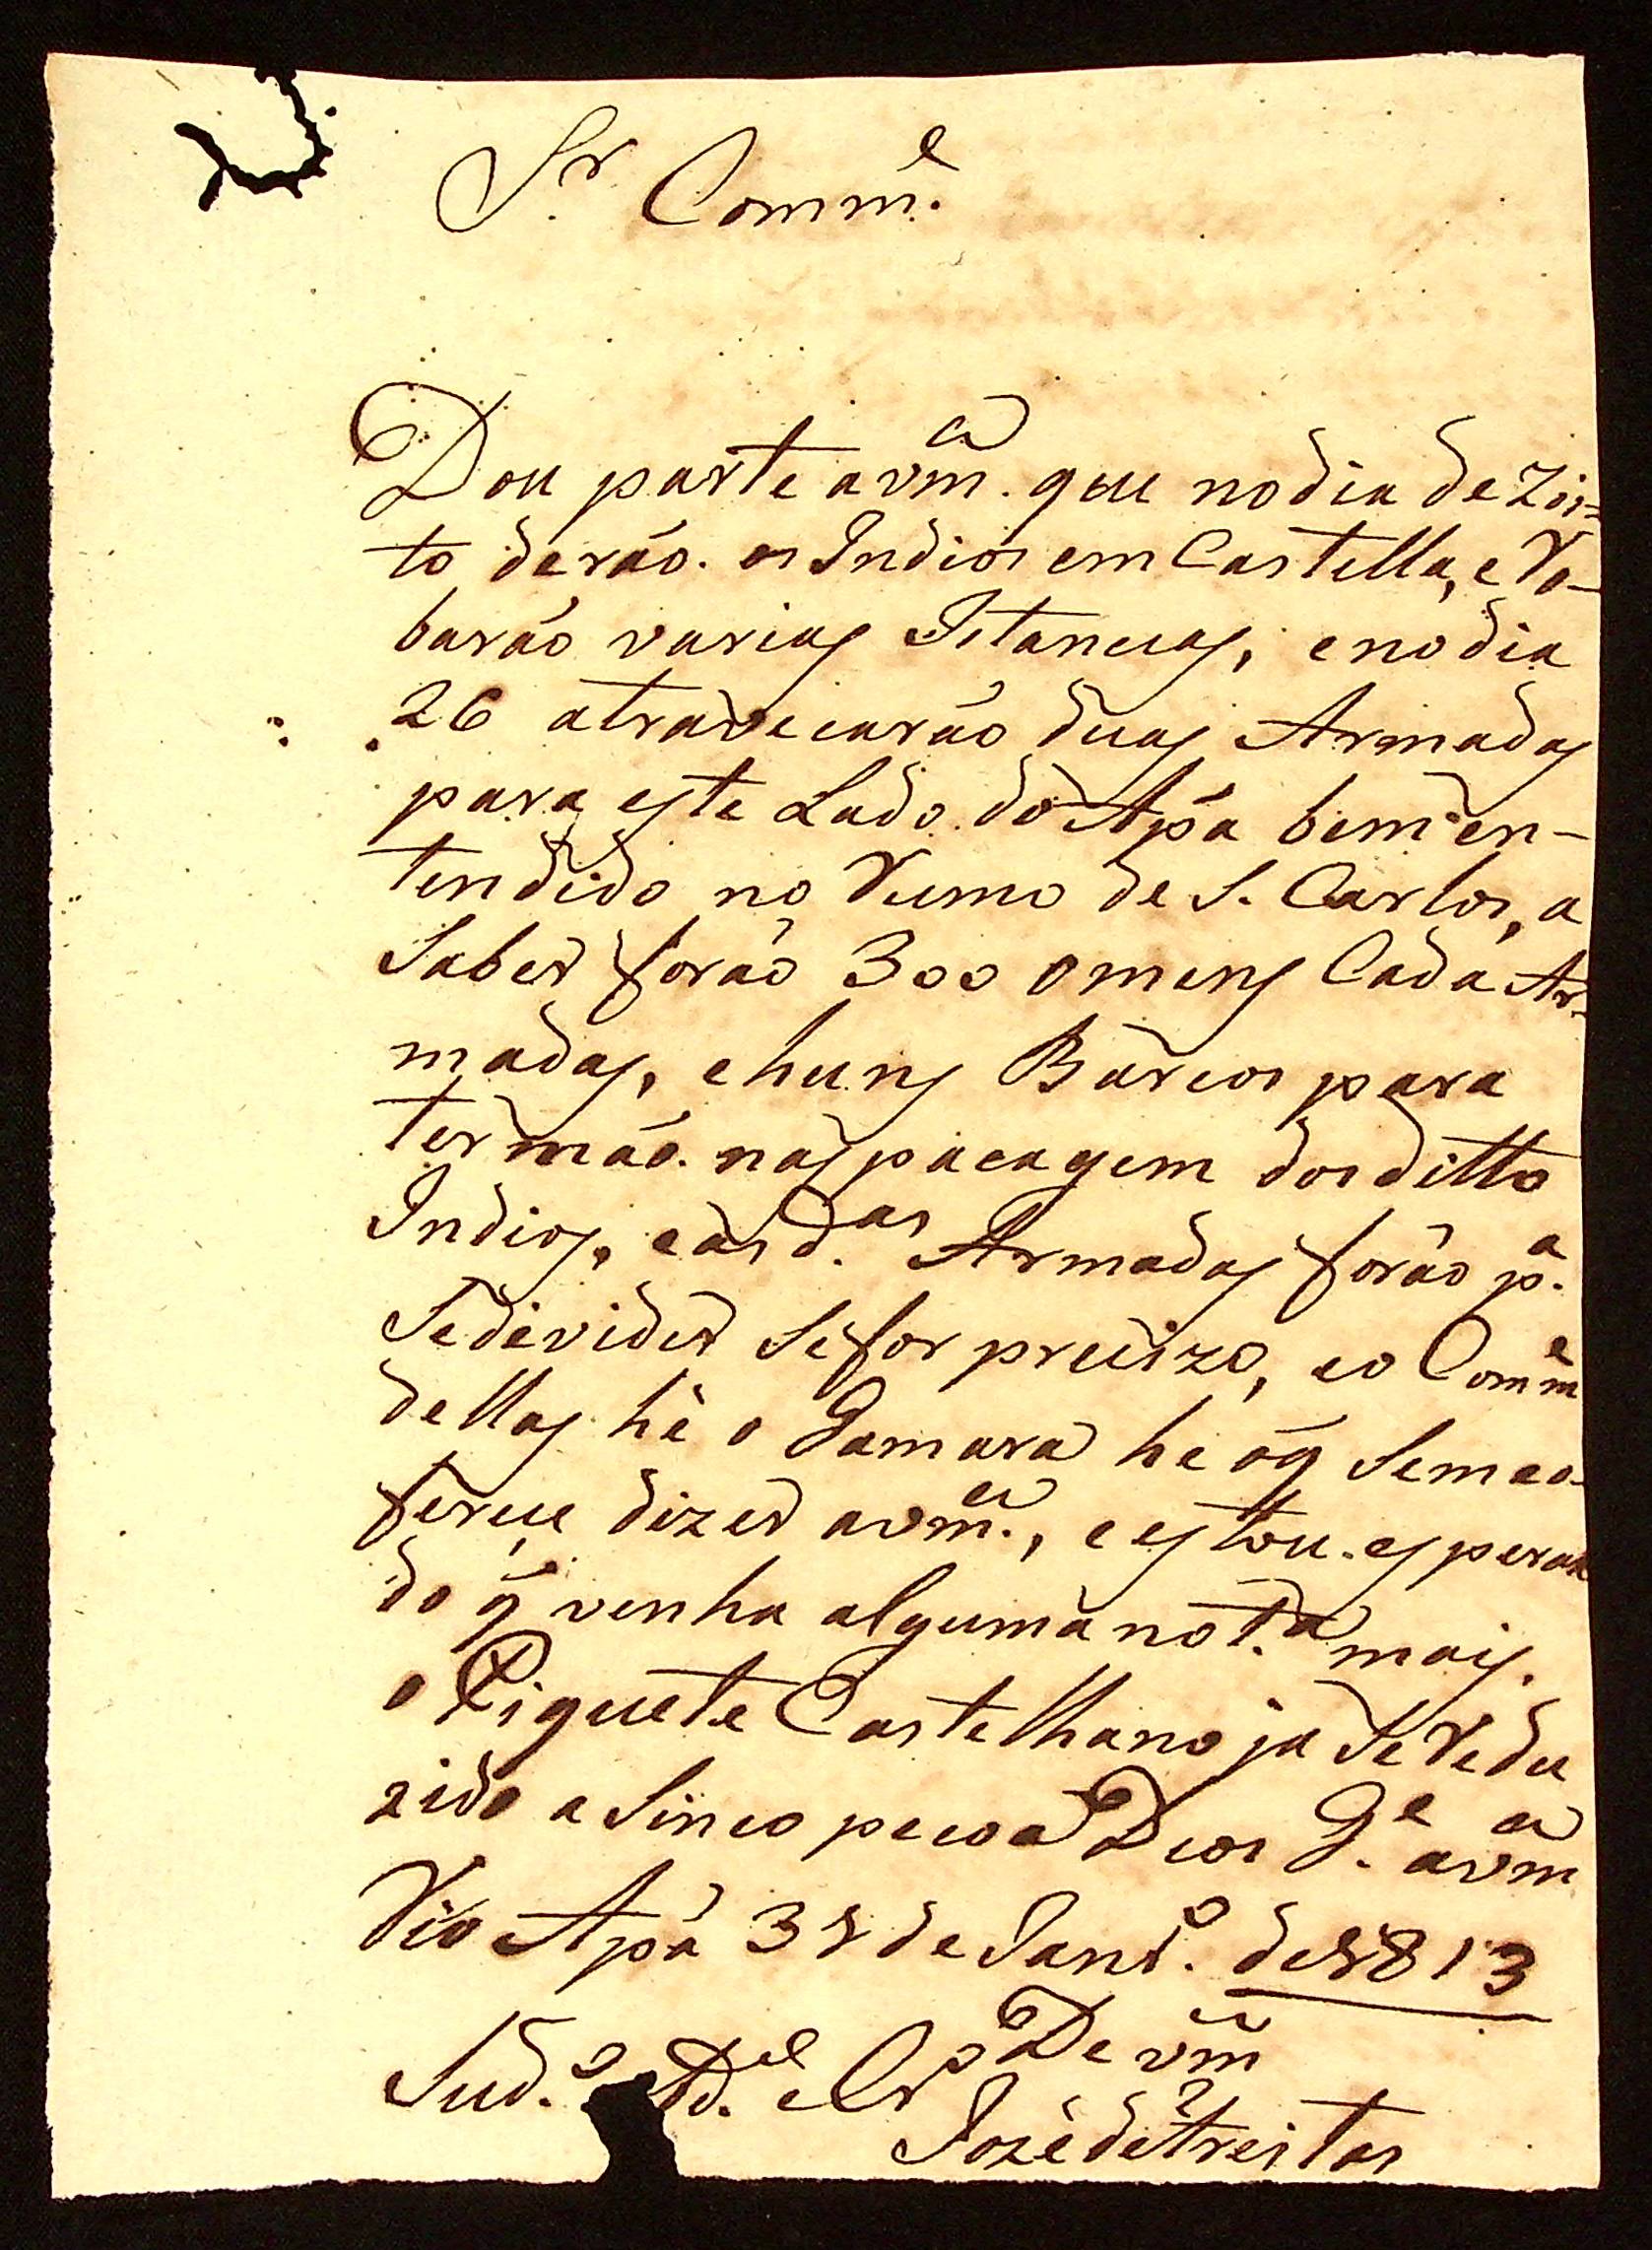 Sr. Comme.
Dou parte a vmce. que no dia dezoi=
to derão. os Indios em Castella, e Ro-
barão varias Istancias, e no dia
26 atravecarão duas Armadas
para este Lado do Apá bem en-
tendido no Rumo de S. Carlos, a
Saber forão 300 omens Cada Ar=
madas, e huns Barcos para
ter mão. nas pacagem dos ditto
Indios, e as das. Armadas forão pa.
Se devider Se for precizo, e o Comme
dellas hè o Gamara he o q̃ Se me o-
ferece dizer a vmce., e estou esperan
do q̃ venha alguma nota. mais.
o Piquete Castelhano ja Se Redu
zido a Sinco pecoa Deos Ge. a vmce
Rio Apá 31 de Janro. de 1813
De vmce
Sudo. Cr
Jozè de Freitas